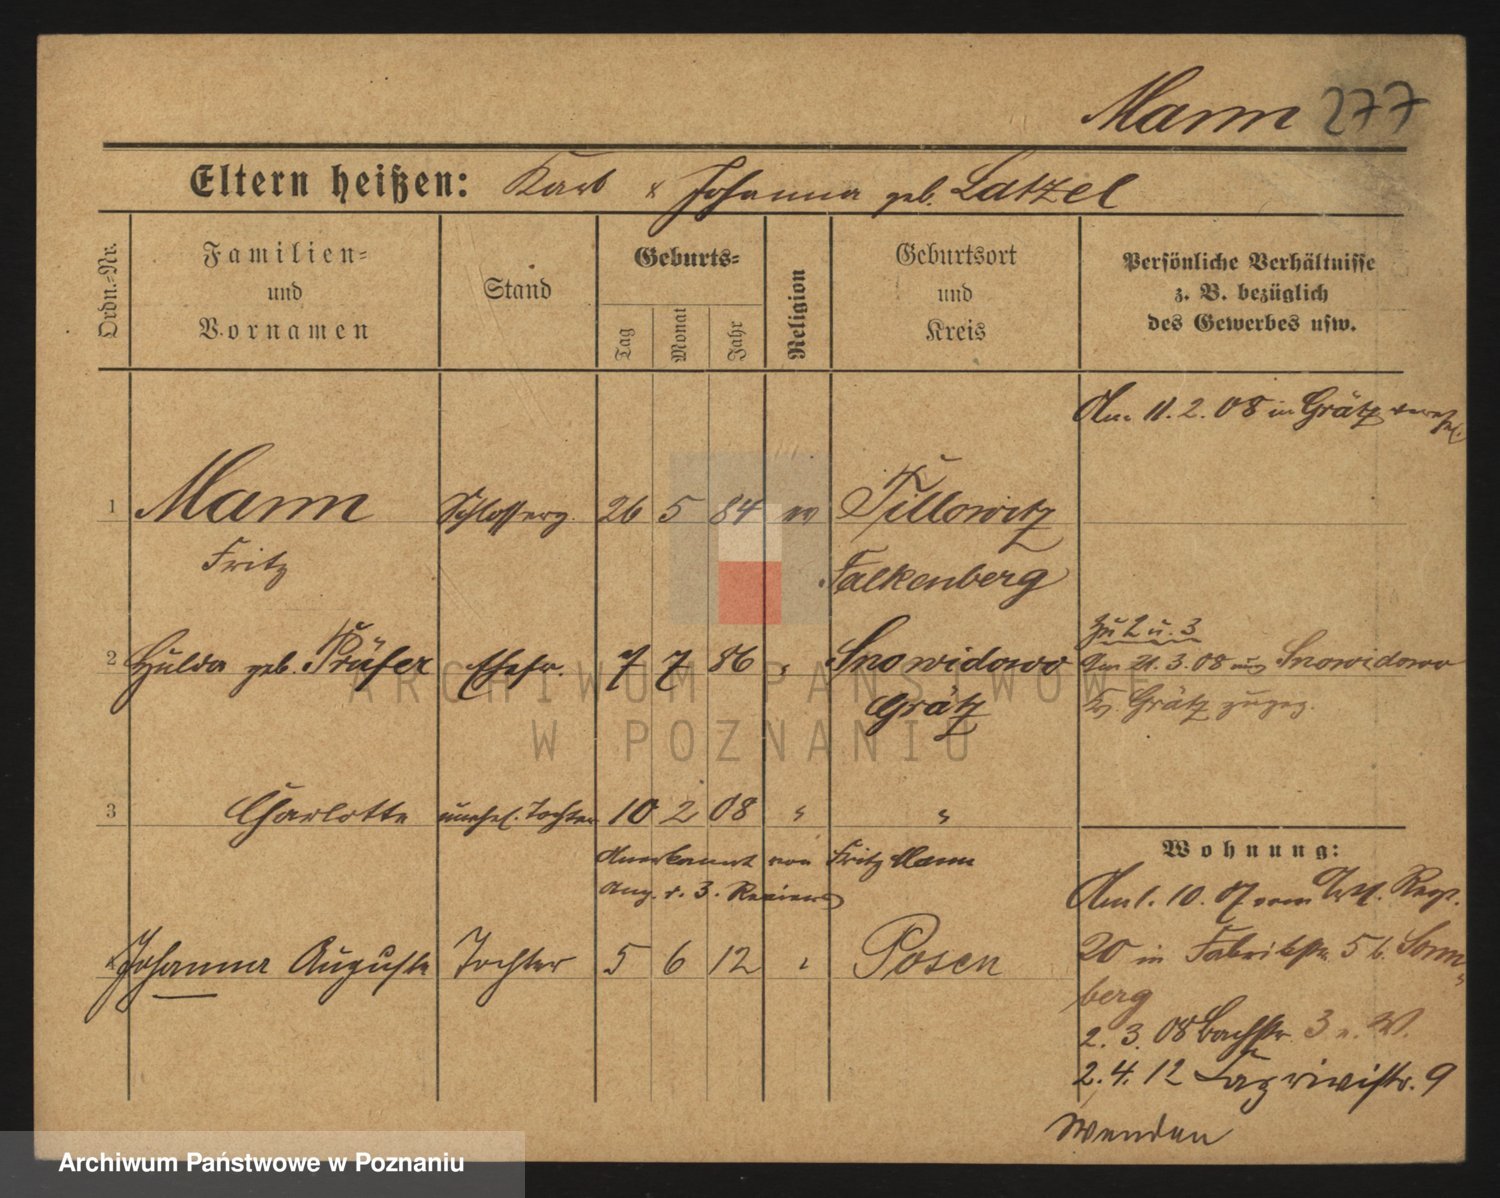 Mann 277
Eltern heißen: Karl & Johanna geb. Latzel
Ordn.=Nr.
Familien=
und
Vornamen
Stand
Geburts=
Tag
Monat
Jahr
Religion
Geburtsort
und
Kreis
Persönliche Verhältnisse
z. B. bezüglich
des Gewerbes usw.
Am 11. 2. 08 in Grätz verehel.
1 Mann Schlosserg. 26 5 84 ev Tillowitz
Fritz Falkenberg
zu 2 u. 3
2 Hulda geb. Präfer Ehefr. 7 7 86 " Snowidowo
Am 21. 3. 08 aus Snowidowo
Grätz
Kr. Grätz zugez.
3 Charlotte unehel. Tochter 10 2 08 " "
Anerkannt von Fritz Mann
Ang. d. 3. Reviers
Johanna Auguste Tochter 5 6 12 " Posen
Wohnung:
Am 1. 10. 07 vom Regt.
20 in Fabrikstr. 5 b. Sonn=
berg
2. 3. 08 Bachstr. 3 n. W.
2. 4. 12 9
Wenden
ARCHIWUM PAŃSTWOWE
W POZNANIU
Archiwum Państwowe w Poznaniu